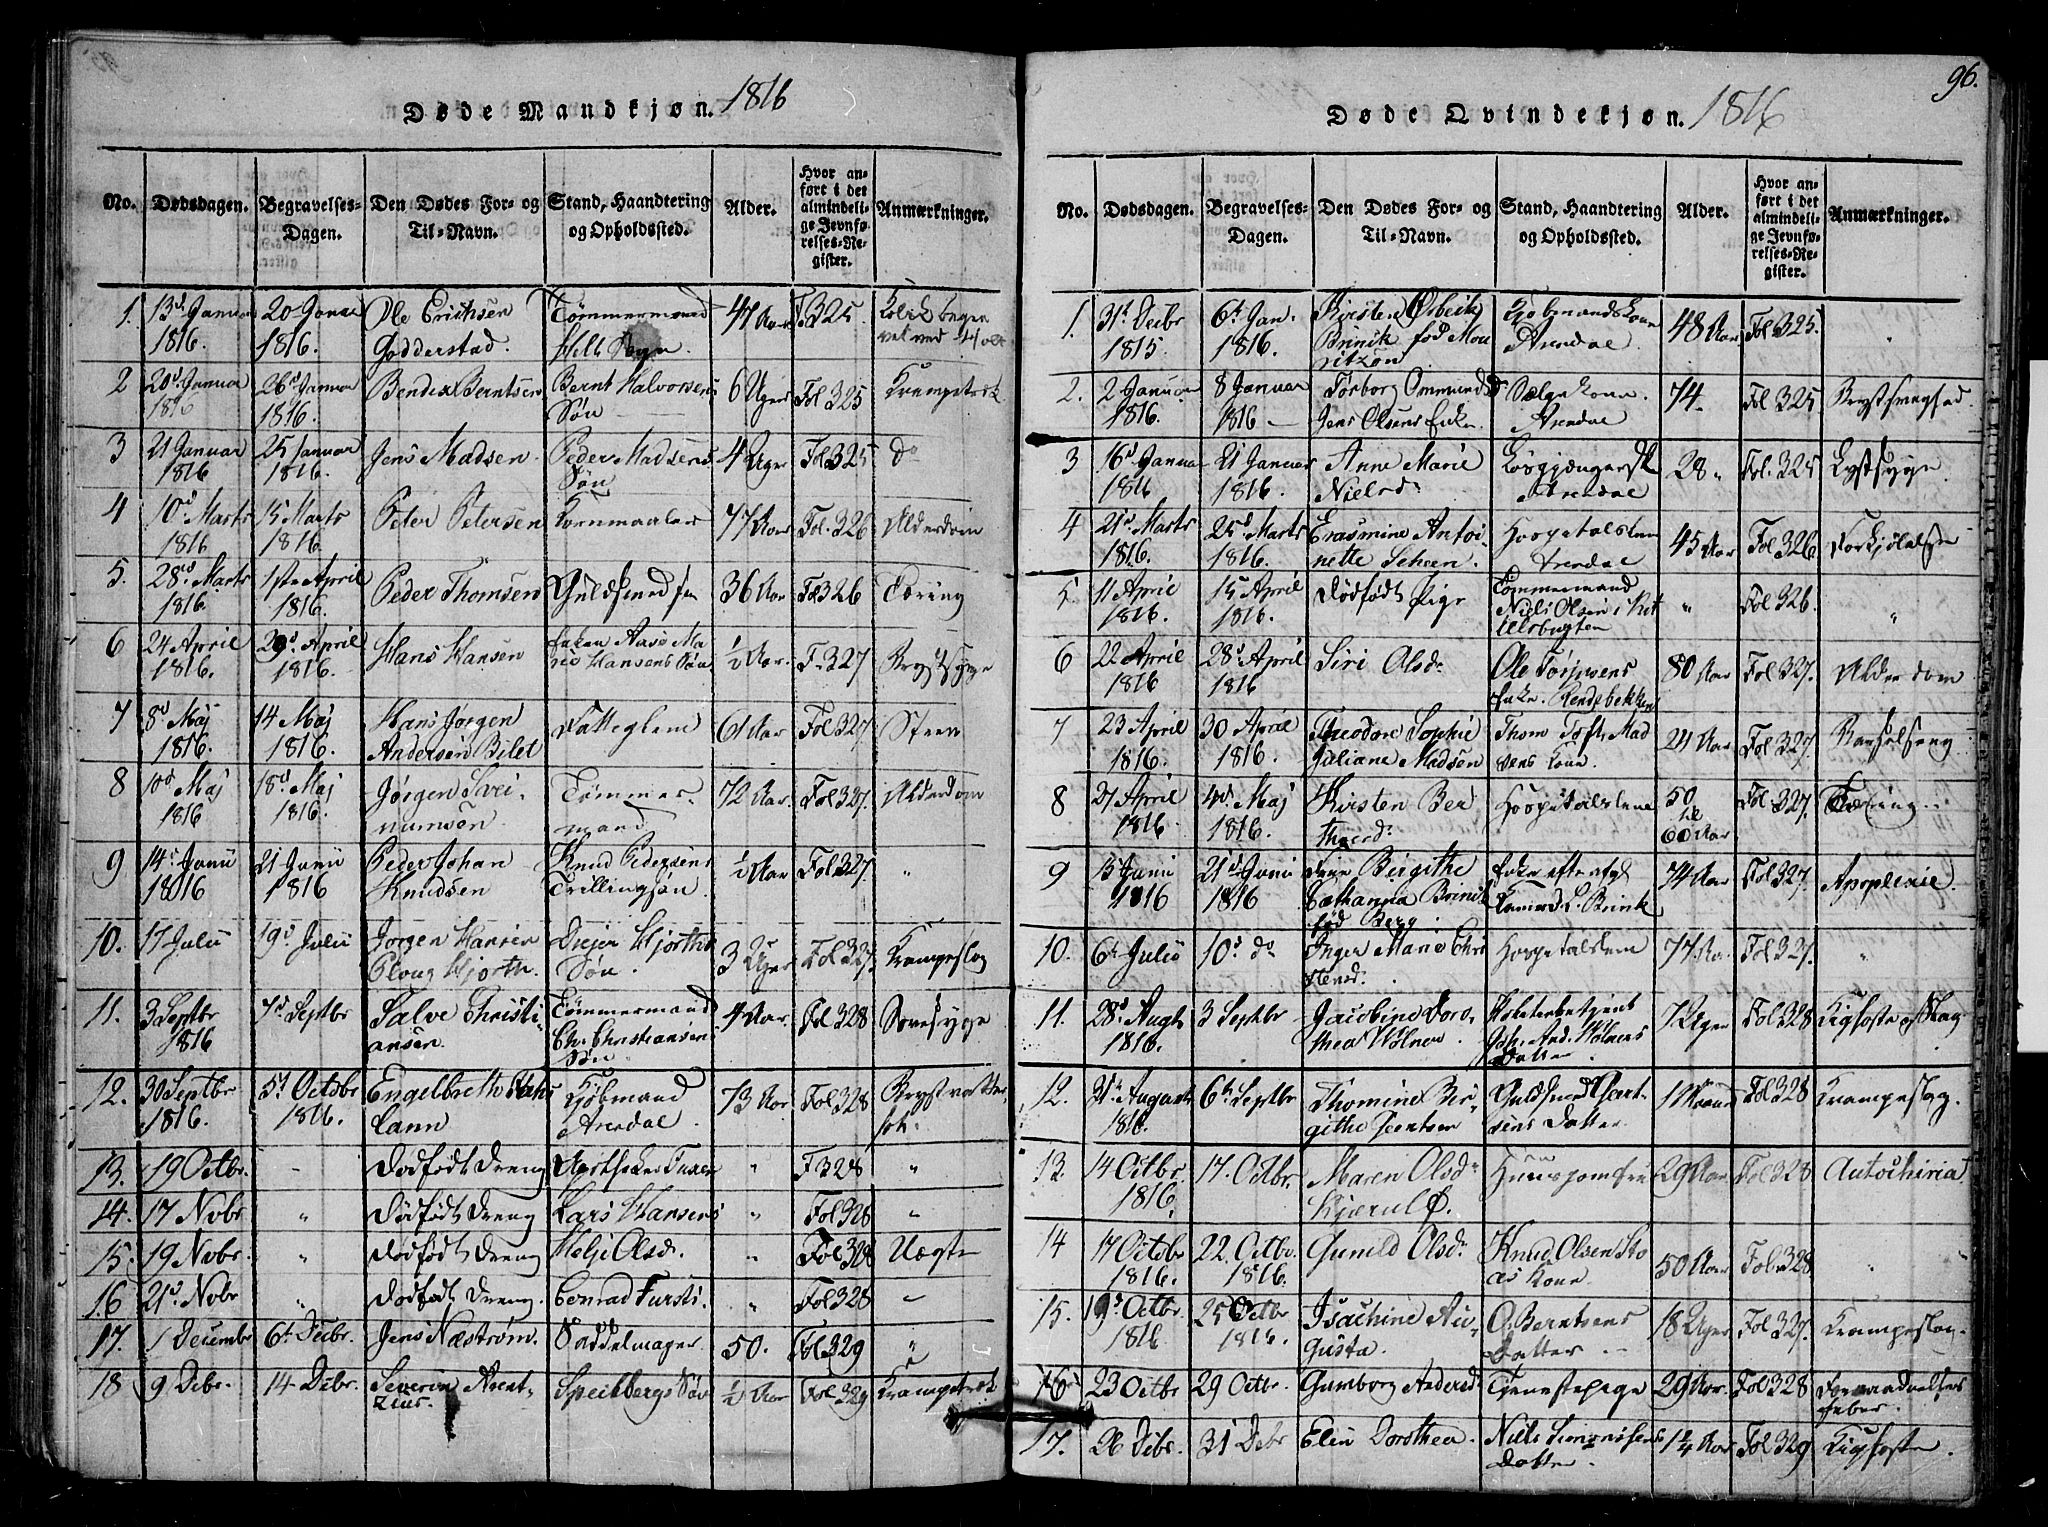 96.
Døde Mandkjøn. 1816
No. Dødsdagen. Begravelses-Dagen. Den Dødes For- og Til-Navn. Stand, Haandtering og Opholdssted. Alder. Hvor anført i det almindelige Jevnførelses-Register. Anmærkninger.
1. 13d Januar 1816. 20 Januar 1816. Ole Erichsen Godderstad. Tømmermand 47 Aar F.325 Kolik
2 20d Januar 1816 26d Januar 1816. Bendix Berntsen Bernt Halvorsens Søn 6 Uger Fol 325 Krampetræk
3 21 Januar 1816 25 Januar 1816. Jens Madsen. Peder Madsens Søn 4 Uger Fol 325 do
4 10d Marts 1816 15 Marts 1816. Peter Petersen Kornmaaler 77 Aar Fol. 326 Alderdom
5. 28d Marts 1816. 1ste April 1816. Peder Thomsen Guldsmed 36 Aar Fol 326 Tæring
6 24 April 1816. 29d April 1816. Hans Hansen Enken Aase Ma Hansens Søn ½ Aar. F. 327 Brystsyge
7 8d Maj 1816. 14 Maj 1816. Hans Jørgen Andersen Bilet Fattiglem 61 Aar Fol 327 Steen
8 10d Maj 1816 18d Maj 1816. Jørgen Svei numsen. Tømmermand 72 Aar. Fol 327. Alderdom
9 14d Junii 1816 21 Junii 1816 Peder Johan Knudsen Knud Pedersens Tvillingsøn. ½ Aar Fol 327. "
10. 17 Julii 19d Julii Jørgen Hansen Ploug Hjorth. Hjorths Søn. 3 Uger Fol 327. Krampeslag
11. 3 Septbr 1816 7d Septbr Salve Christiansen. Tømmermand Chr. Christiansens Søn 4 Aar. Fol 328
12. 30 Septbr 1816. 5d Octobr 1816. Engelbreth Falk Kjøbmand Arendal. 73 Aar. Fol 328 Brystvattersot.
13. 19 Octbr. - Dødfødt Dreng Apotheker Tuxen " F 328 "
14. 17 Nobr " Dødfødt Dreng Lars Hansens " Fol 328 "
15. 19 Nobr. " Dødfødt Dreng Helje Olsd. " Fol 328 Uægte
16 21d Nobr " Dødfødt Dreng. Conrad Fursti. " Fol 328 "
17. 1 Decembr 6t Decbr. Jens Næstrøm. Saddelmager. 50. Fol 329 "
18 9 Debr. 14 Debr. Severin Arentzius. Speilbergs Søn ½ Aar Fol 329 Krampetræk
Døde Qvindekjøn. 1816
No. Dødsdagen. Begravelses-Dagen. Den Dødes For- og Til-Navn. Stand, Haandtering og Opholdssted. Alder. Hvor anført i det almindelige Jevnførelses-Register. Anmærkninger.
1. 31t Decbr 1815 6t Jan. 1816. Kirsten Brinck fød Mouritzøn Kjøbmandskone Arendal 48 Aar Fol 325.
2. 2 Januar 1816. 8 Januar 1816 Torborg Ommunds Jens Olsens Enke Arendal 74. Fol 325
3 16d Januar 1816 21 Januar 1816. Anne Marie Nielsd. Løsgjængerske Arendal 28 " Fol. 325
4 21d Marts 1816. 25d Marts 1816. Erasmine Antoinette Scheen. Hospitalslem Arendal 45 Aar Fol 326. Forkjølelse
5 11 April 1816. 15 April 1816. Dødfødt Pige Tømmermand Niels Olsen i Kittelsbugten " Fol 326. "
6 22 April 1816 28d April 1816 Siri Olsd. Ole Torjusens Enke. Rendebekken 80 Aar Fol 327. Alderdom
7 23 April 1816. 30 April 1816. Theodore Sophie Juliane Madsen Thom Toft Madsens Kone. 21 Aar Fol 327. Barselseng
8 27 April 1816. 4d Maj 1816. Kirsten Ber Hospitalslem 50 til 60 Aar Fol 327. Tæring
9 15 Junii 1816 21d Junii 1816 Birgithe Catharina Brinck fød Berg. Enke efter L. Brink 74 Aar Fol 327. Apoplexie.
10. 6t Julii 10d do Inger Marie Christensd. Hospitalslem 77 Aar. Fol 327. "
11. 28d Augt 1816. 3 Septbr Jacobine Dorothea Wølner. Joh. And. Wølners Datter 7 Uger Fol 328 Kighoste og Slag
12. 31t August 1816. 6t Septbr Thomine Birgithe Guldsmed Datter 1 Maaned Fol 328 Krampeslag.
13. 14 Octbr. 1816. 17. Octbr. Maren Olsd Kjærulf. Huusjomfru 29 Aar Fol 328 Autochiria
14 17 Octobr 1816. 22. Octbr. 1816. Gunild Olsd. Knud Olsen Stoas Kone 50 Aar Fol. 328 "
15. 19d Octbr. 1816 25 Octbr 1816. Isachine Augusta. O. Berntsens Datter 18 Uger Fol 327. Krampeslag.
16 23 Octbr 29 Octbr. Gumborg Andersd Tjenestepige 29 Aar. Fol 328 Forraadnelses feber.
17. 26 Debr. 31 Debr Elin Dorothea. Niels Simonsens Datter 1¼ Aar Fol 329 Kighoste.